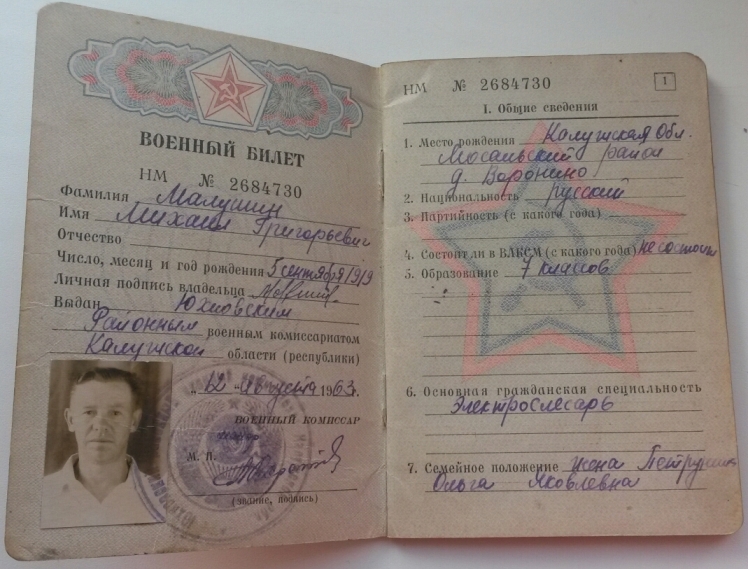 ВОЕННЫЙ БИЛЕТ
НМ № 2684730
Фамилия Малушин
Имя Михаил
Отчество Григорьевич
Число, месяц и год рождения 5 сентября 1919
Личная подпись владельца
Выдан Юхновским
Районным военным комиссариатом
Калужской области (республики)
1963 г.
ВОЕННЫЙ КОМИССАР
М. П.
(звание, подпись)
НМ № 2684730
1
I. Общие сведения
1. Место рождения Калужская обл.
Мосальский район
д. Воронино
2. Национальность русский
3. Партийность (с какого года)
4. Состоит ли в ВЛКСМ (с какого года) не состоит
5. Образование 7 классов
6. Основная гражданская специальность
электрослесарь
7. Семейное положение жена
Ольга Яковлевна